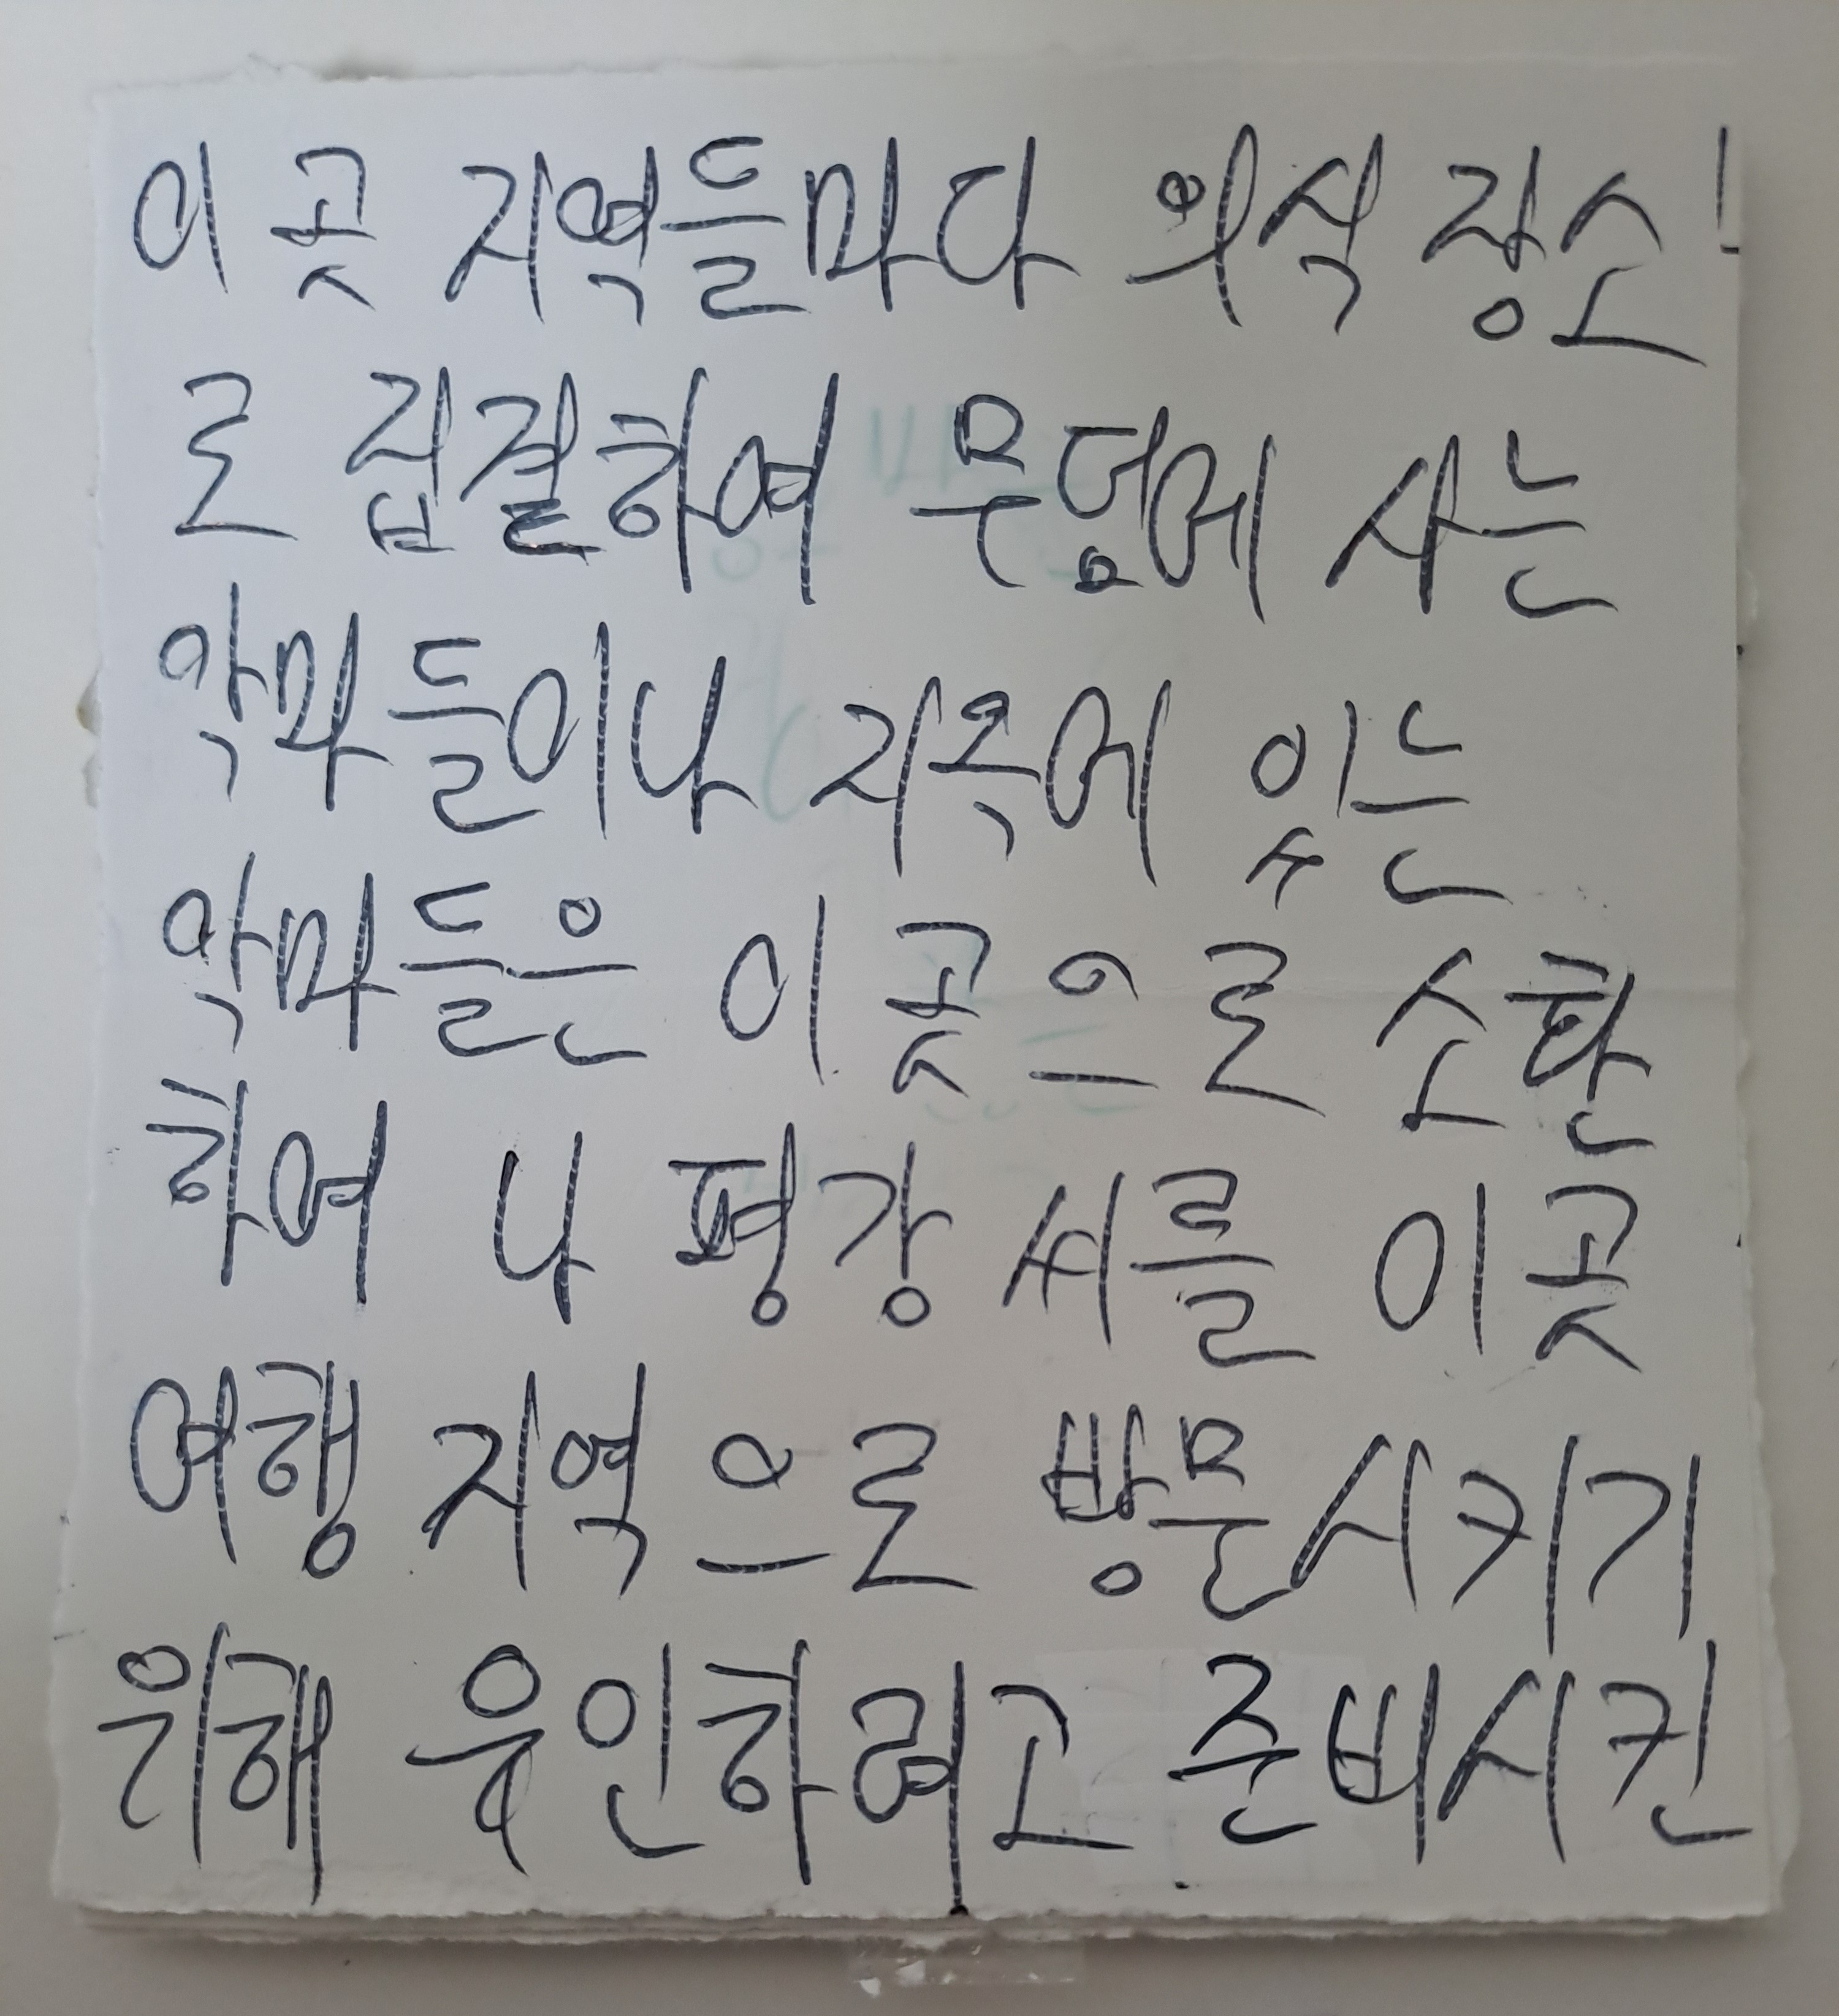 이 곳 지역들마다 의식 장소!
로 집결하여 무덤에 사는
악마들이나 지옥에 있는
악마들은 이 곳으로 소환
하여 나 평강 씨를 이 곳
여행 지역으로 방문시키기
위해 유인하려고 준비시킨